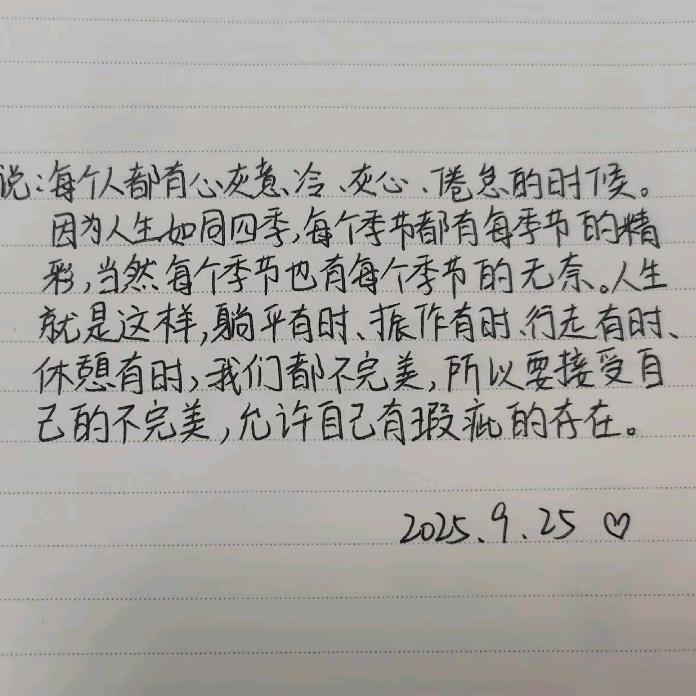 说:每个人都有心灰意冷、灰心、倦怠的时候。
因为人生如同四季,每个季节都有每季节的精
彩,当然每个季节也有每个季节的无奈。人生
就是这样,躺平有时、振作有时、行走有时、
休憩有时,我们都不完美,所以要接受自
己的不完美,允许自己有瑕疵的存在。
2025.9.25 ♡